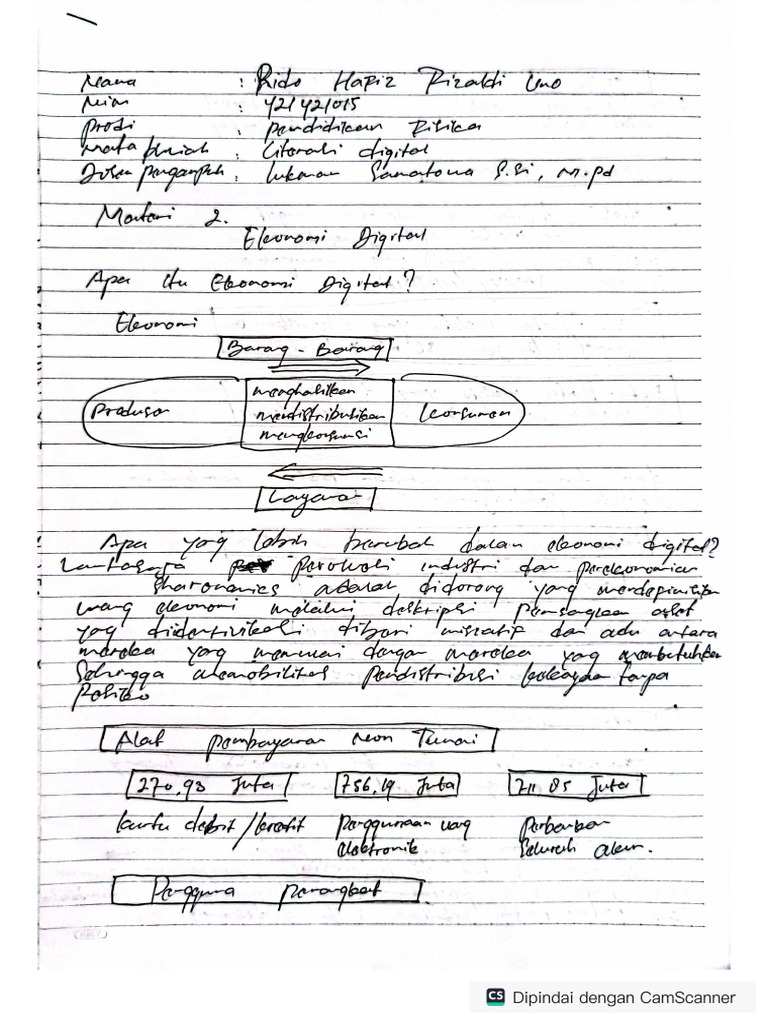 Nama : Rido Hafiz Rizaldi Uno
Nim : 421421015
Prodi : Pendidikan Fisika
Mata kuliah : Literasi digital
Dosen pengampuh : Lukman Samatowa S.Si, M.pd
Materi 2.
Ekonomi Digital
Apa itu Ekonomi Digital?
Ekonomi
Barang - Barang
Produsen
menghasilkan
mendistribusikan
mengkonsumsi
konsumen
Layanan
Apa yang lebih berubah dalam ekonomi digital?
industri dan perekonomian
adalah didorong yang
uang ekonomi melalui deskripsi aset
yang dari antara
mereka yang dengan mereka yang membutuhkan
Sehingga pendistribusi kekayaan tanpa
Alat pembayaran non Tunai
270,93 Juta
756,19 Juta
711 85 Juta
kartu debit / kredit
penggunaan uang
elektronik
Perbankan
Seluruh
Pengguna perangkat
CS Dipindai dengan CamScanner